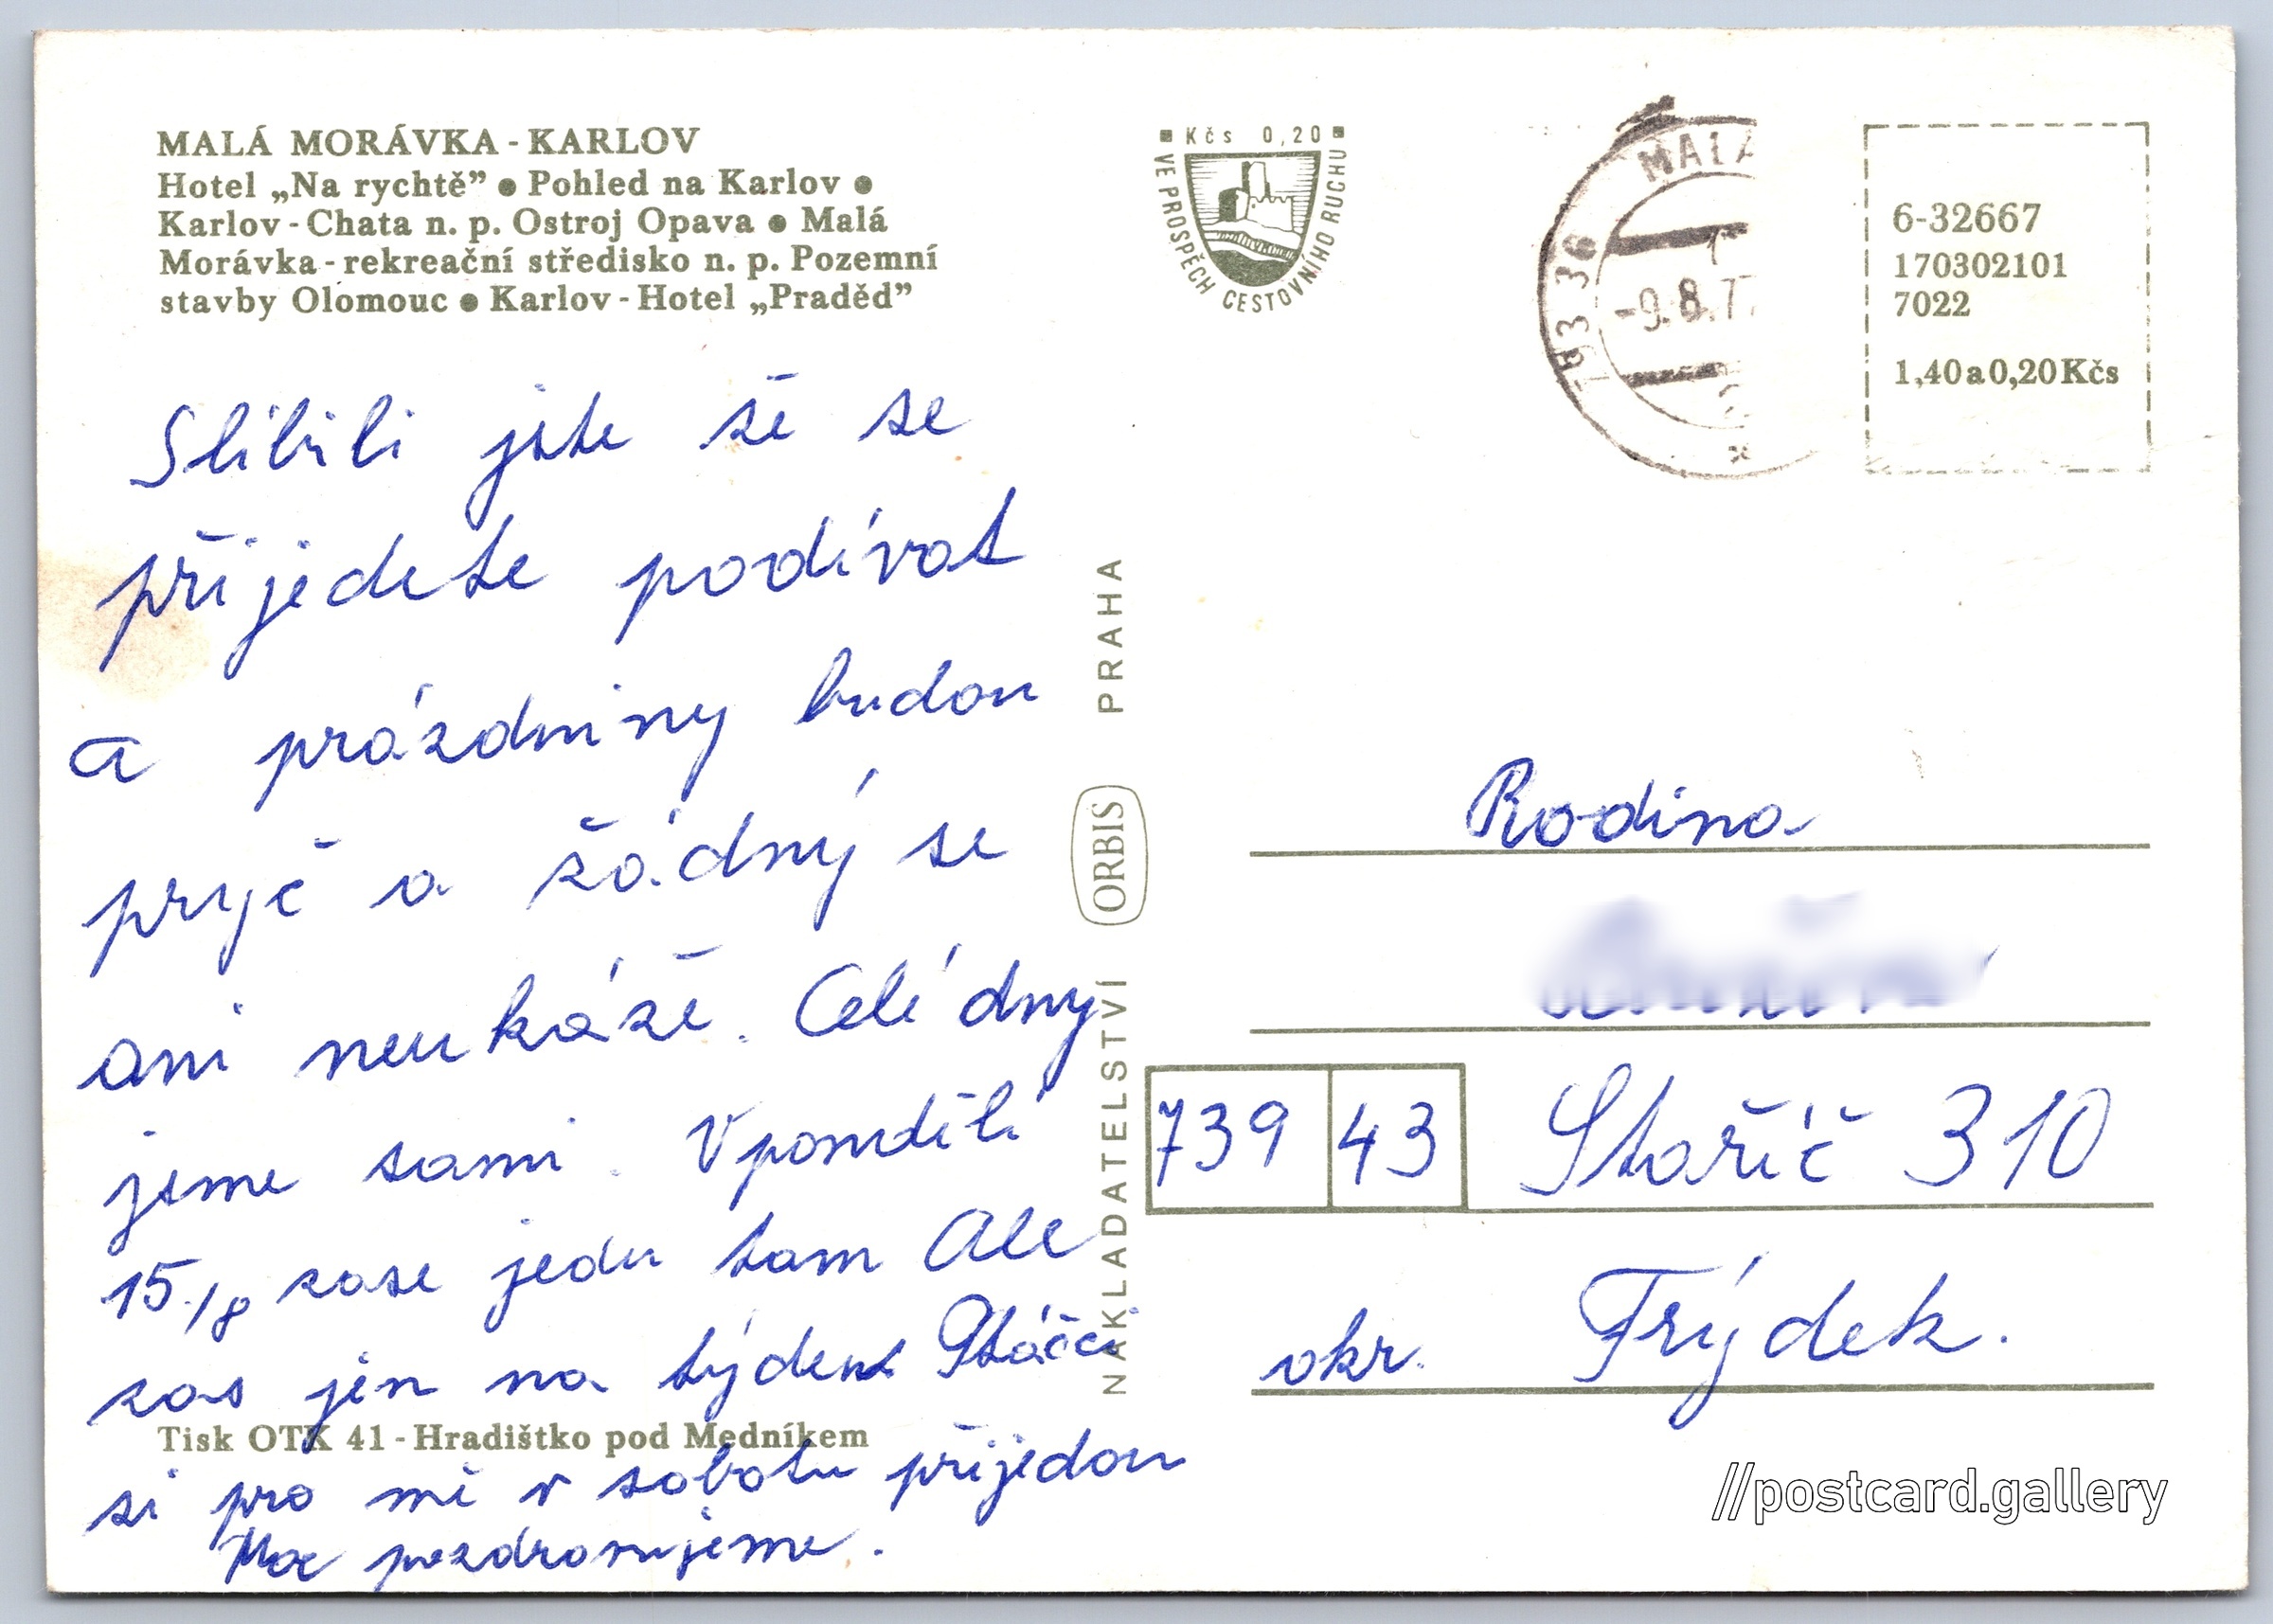 MALÁ MORÁVKA - KARLOV
Hotel „Na rychtě” ● Pohled na Karlov ●
Karlov - Chata n. p. Ostroj Opava ● Malá
Morávka - rekreační středisko n. p. Pozemní
stavby Olomouc ● Karlov - Hotel „Praděd”
Kčs 0,20
VE PROSPĚCH CESTOVNÍHO RUCHU
MALÁ
793 36
-9.8.77
6-32667
170302101
7022
1,40 a 0,20 Kčs
Slíbili jste že se
přijedete podívat
a prázdniny budou
pryč a žádný se
ani neukáže. Celé dny
jsme sami. V pondělí
15./8 zase jedu tam Ale
zas jen na týden Ptáčci
si pro mě v sobotu přijedou
Moc pozdravujeme.
Tisk OTK 41 - Hradištko pod Medníkem
NAKLADATELSTVÍ ORBIS PRAHA
Rodina
739 43 Staříč 310
okr. Frýdek.
//postcard.gallery